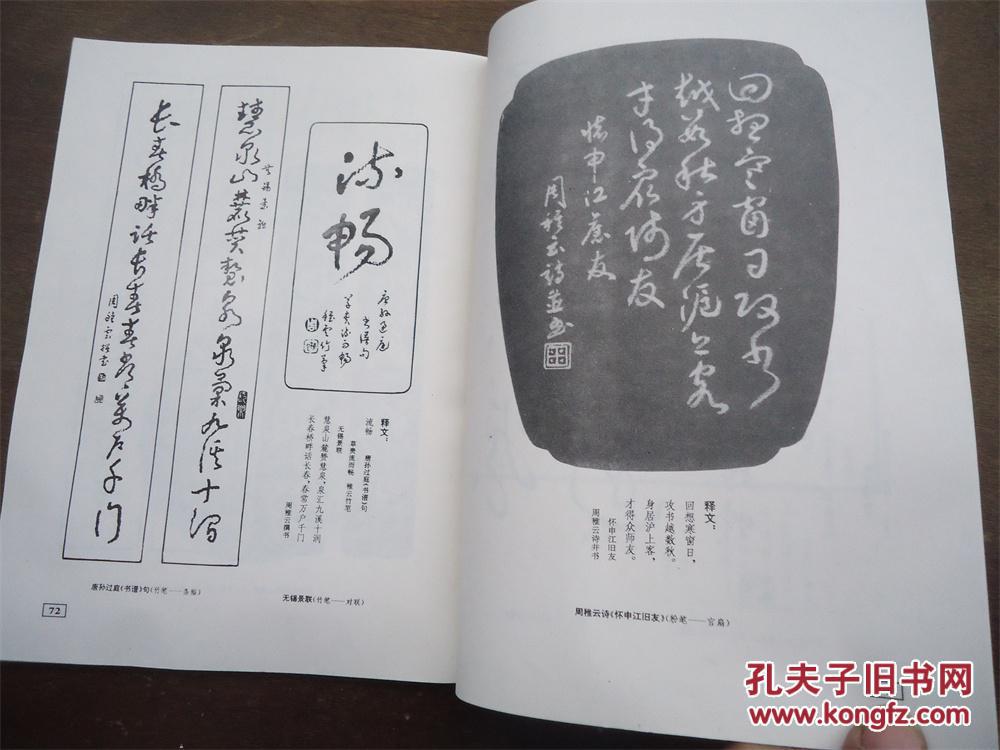 慧泉山麓赞慧泉泉汇九溪十涧
无锡景联
长春桥畔话长春春常万户千门
周稚云撰书
流畅
唐孙过庭
书谱句
草贵流而畅
稚云竹笔
释文：
流畅
唐孙过庭《书谱》句
草贵流而畅 稚云竹笔
无锡景联
慧泉山麓赞慧泉，泉汇九溪十涧
长春桥畔话长春，春常万户千门
周稚云撰书
唐孙过庭《书谱》句(竹笔——条幅)
无锡景联(竹笔——对联)
72
回想寒窗日攻书
越数秋身居沪上客
才得众师友
怀申江旧友
周稚云诗并书
释文：
回想寒窗日，
攻书越数秋。
身居沪上客，
才得众师友。
怀申江旧友
周稚云诗并书
周稚云诗《怀申江旧友》(粉笔——宫扇)
孔夫子旧书网
www.kongfz.com